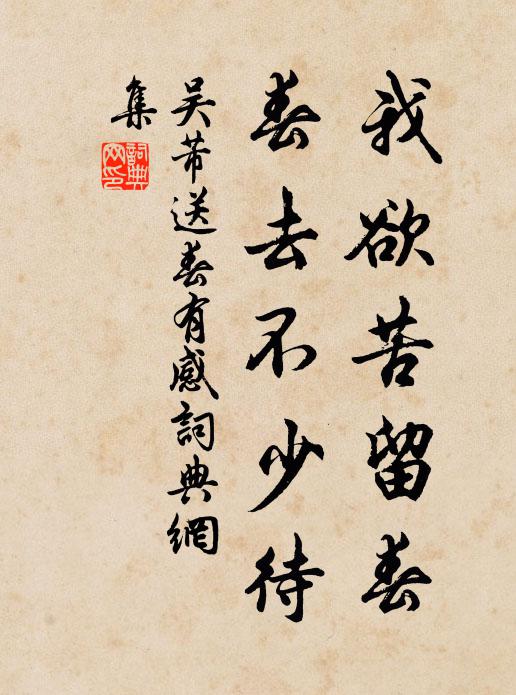 我欲苦留春
春去不少待
吴芾送春有感詞典網
集
詞典
网印